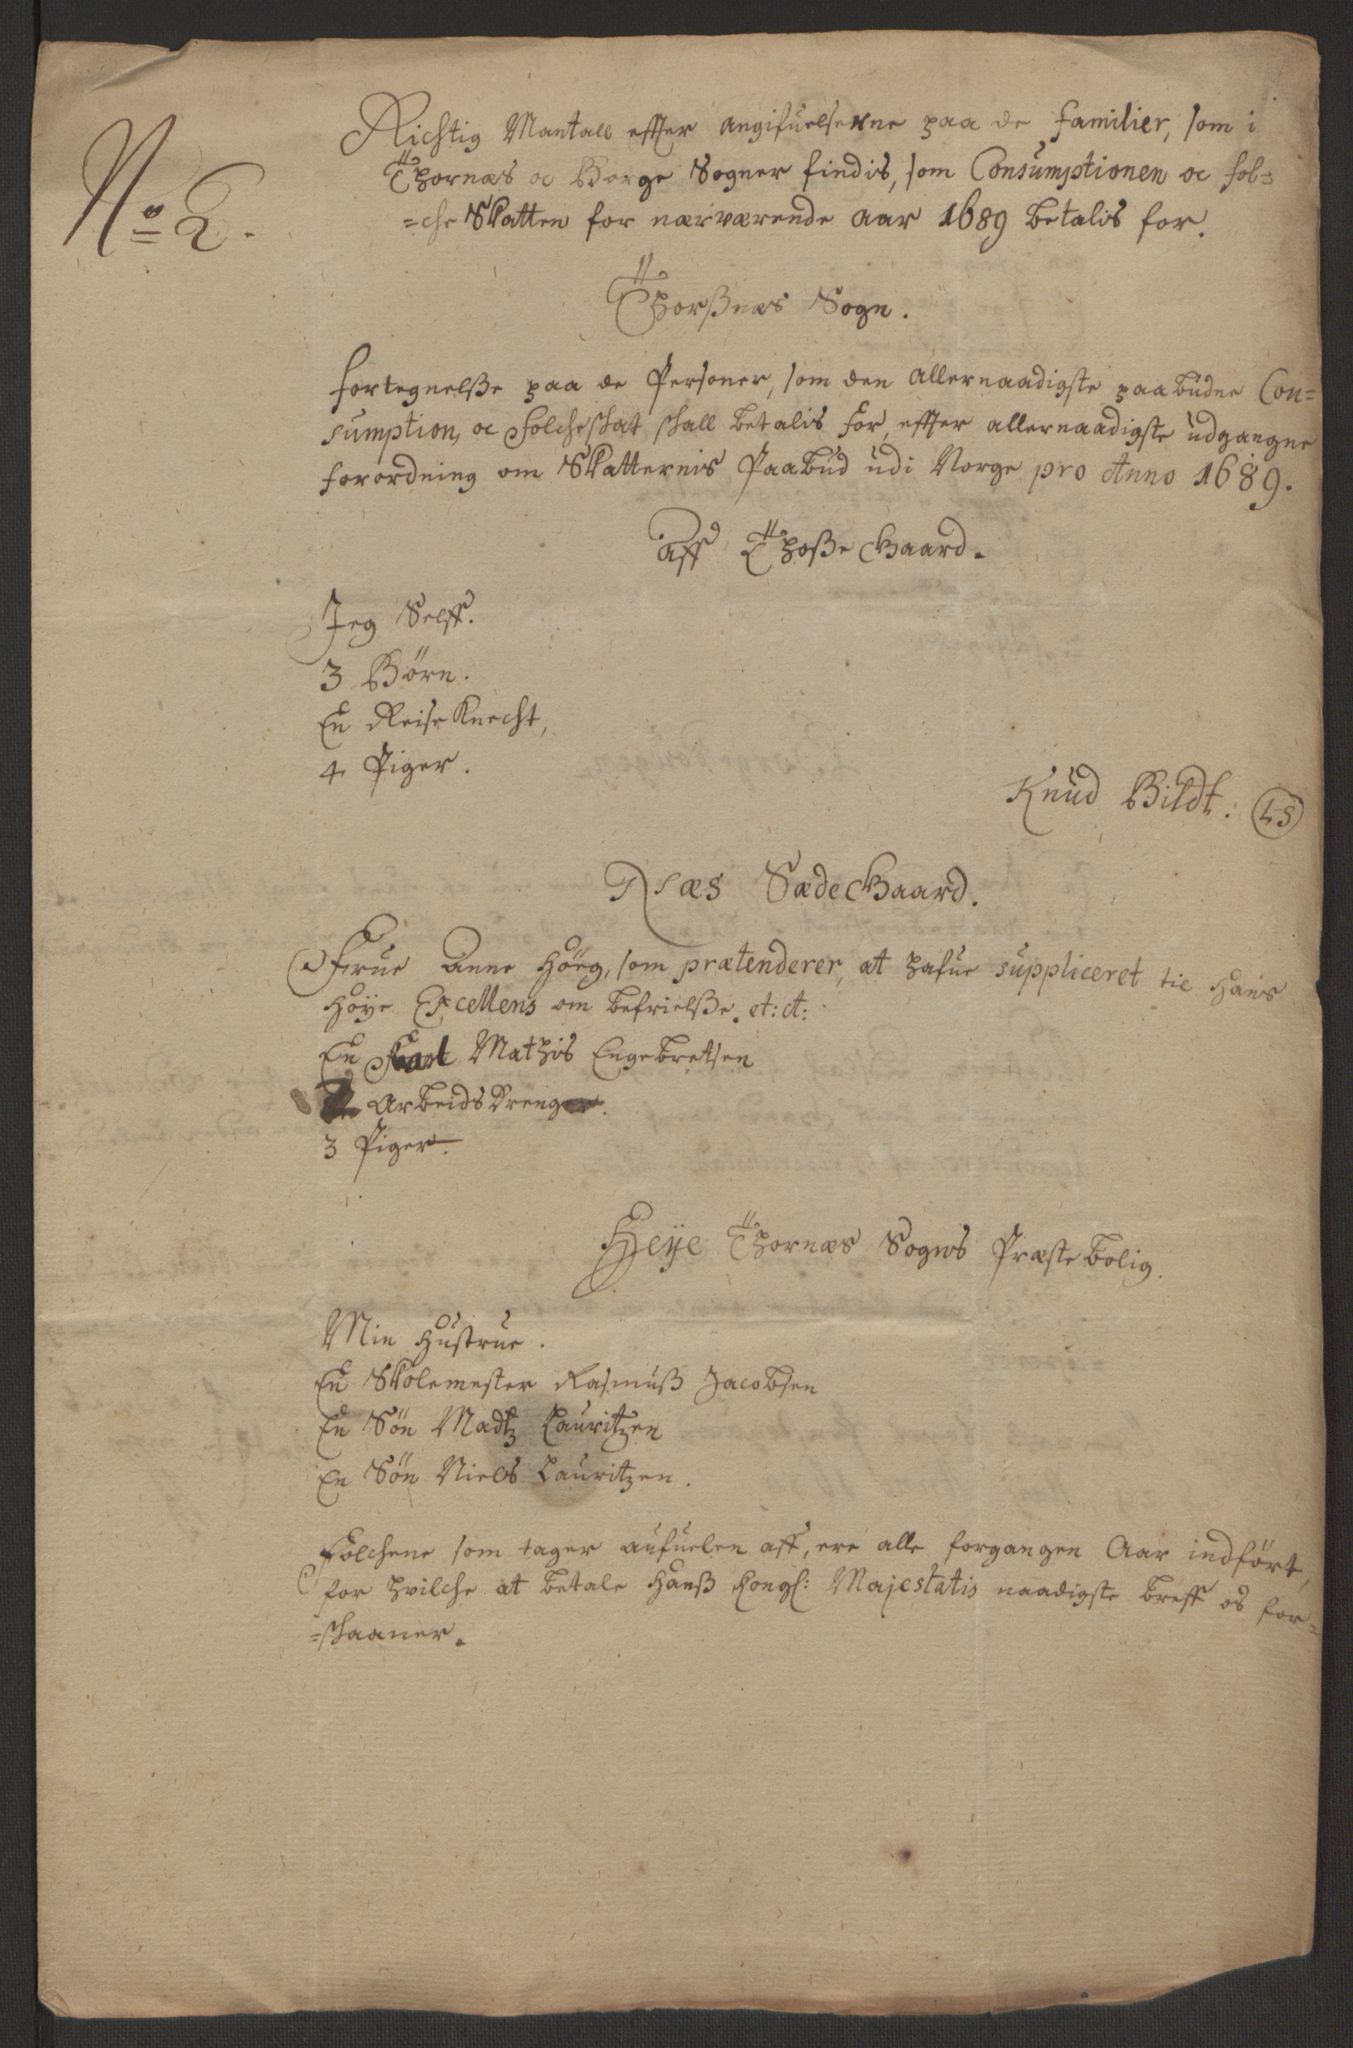 No 2.
Richtig Mantall effter angifuelserne paa de familier, som i
Thornæs oc Borge Sogner findis, som Consumptionen oc fol=
=che Skatten for nærværende aar 1689 betalis for.
Thorßnæs Sogn.
Fortegnelße paa de Personer, som den allernaadigste paabudne Con=
sumption, oc Folcheskat skall betalis for, effter allernaadigste udgangne
forordning om Skatternis Paabud udi Norge pro Anno 1689.
Aff Thoße Gaard.
Jeg Selff.
3 Børn.
En Reise Knecht,
4 Piger.
Knud Bildt. LS
Næs Sæde Gaard.
Frue Anne Höeg, som prætenderer, at hafue suppliceret til Hans
Höye Excellens om befrielße. et: ct:
En Karl Mathis Engebretsen
Arbeids Drenger.
3 Piger.
Heye Thornæs Sogns Præste bolig.
Min Hustrue.
En Skolemester Rasmuß Jacobsen
En Søn Madtz Lauritzen
En Søn Niels Lauritzen.
Folchene som tager aufuelen aff, ere alle forgangen Aar indført,
for hvilche at betale Hanß Kongl: Majestatis naadigste breff os for=
=skaaner.